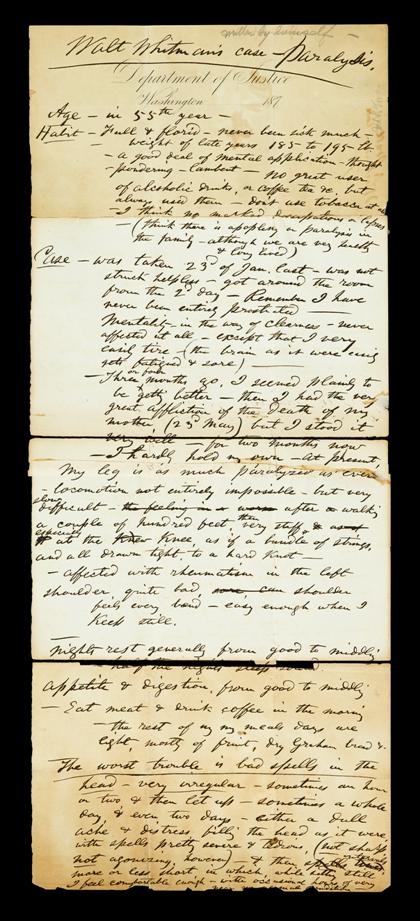 written by himself —
Walt Whitman's case — Paralysis.
Department of Justice
Washington 187
Age — in 55th year —
Habit — Full & florid — never been sick much —
— weight of late years 185 to 195 lb
— a good deal of mental application — thought
— pondering — No great user
of alcoholic drinks, or coffee tea &c, but
always used them — don't use tobacco at
— I think no marked dissipations or
— (think there is apoplexy or paralysis in
the family — although we are very
& long lived)
Case — was taken 23d of Jan. last — was not
struck helpless — got around the room
from the 2d day — Remember I have
never been entirely prostrated —
Mentality — in the way of clearness — never
affected it all — except that I very
easily tire — (the brain as it were
gets fatigued & sore) —
or four
— Three months go, I seemed plainly to
be getting better — then I had the very
great affliction of the death of my
mother, (23d May) but I stood it
very well — for two months now
— I hardly hold my own — At present,
My leg is as much paralyzed as ever
— locomotion not entirely impossible — but very
slow
difficult — the feeling is worse after walking
a couple of hundred feet, then very stiff, &
especially
at the knee, as if a bundle of strings,
and all drawn tight to a hard knot —
— affected with rheumatism in the left
shoulder, quite bad, can shoulder
feels every bend — easy enough when I
keep still.
— nights rest generally from good to middling
— half the nights sleep sound.
appetite & digestion, from good to middling
— Eat meat & drink coffee in the morning
— the rest of my meals days are
light, mostly of fruit, dry Graham bread &c
The worst trouble is bad spells in the
head — very irregular — sometimes an hour
or two & then let up — sometimes a whole
day, & even two days — either a dull
ache & distress, filling the head as it were,
with spells pretty severe & tedious, (not sharp
not agonizing, however) — & then
more or less short in which, while sitting still
I feel comfortable enough — with occasional hours of very